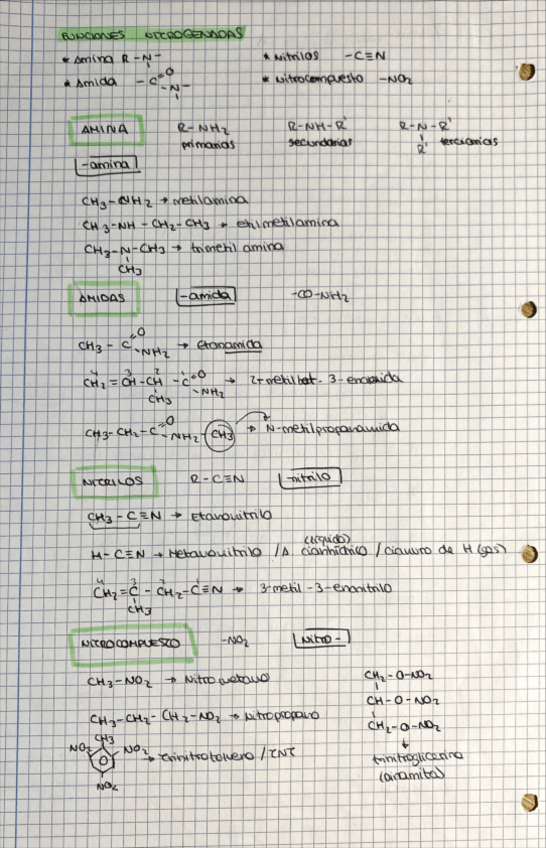 FUNCIONES NITROGENADAS
* Amina R-N-
* Nitrilos -C≡N
* Amida -C=O -N-
* Nitrocompuesto -NO2
AMINA R-NH2 R-NH-R' R-N-R'
primarias secundarias R' terciarias
-amina
CH3-NH2 → metilamina
CH3-NH-CH2-CH3 → etilmetilamina
CH3-N-CH3 → trimetil amina
CH3
AMIDAS -amida -CO-NH2
CH3-C=O NH2 → Etanamida
4 3 2 1
CH2=CH-CH-C=O NH2 → 2-metilbut-3-enamida
CH3
CH3-CH2-C=O NH2 CH3 → N-metilpropanamida
NITRILOS R-C≡N -nitrilo
CH3-C≡N → Etanonitrilo
(líquido)
H-C≡N → Metanonitrilo / Á cianhídrico / cianuro de H (gas)
4 3 2 1
CH2=C-CH2-C≡N → 3-metil-3-enonitrilo
CH3
NITROCOMPUESTO -NO2 Nitro-
CH3-NO2 → Nitrometano
CH3-CH2-CH2-NO2 → Nitropropano
CH3
NO2 NO2 → trinitrotolueno / TNT
NO2
CH2-O-NO2
CH-O-NO2
CH2-O-NO2
↓
trinitroglicerina
(dinamita)